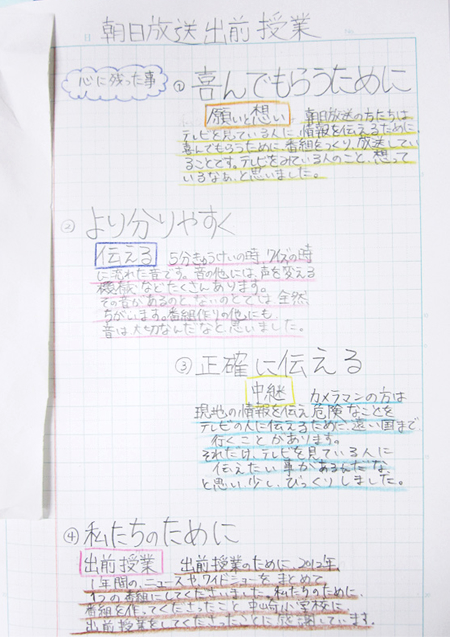 朝日放送出前授業
心に残った事
① 喜んでもらうために
願いと想い 朝日放送の方たちは
テレビを見ている人に、情報を伝えるために、
喜んでもらうために、番組をつくり、放送してい
ることです。テレビをみている人のこと、想って
いるなあ、と思いました。
② より分りやすく
伝える 5分きゅうけいの時、クイズの時
に流れた音です。音の他には、声を変える
機械などたくさんあります。
その音があるのと、ないのとでは全然
ちがいます。番組作りの他にも、
音は大切なんだなと、思いました。
③ 正確に伝える
中継 カメラマンの方は
現地の情報を伝え危険なことを
テレビの人に伝えるために、遠い国まで
行くことがあります。
それだけ、テレビを見ている人に
伝えたい事があるんだな、
と思い少し、びっくりしました。
④ 私たちのために
出前授業 出前授業のために、2012年
1年間の、ニュースや、ワイドショーをまとめて
1つの番組にしてくださいました。私たちのために
番組を作ってくださったこと、小学校に
出前授業をしてくださったことに感謝しています。